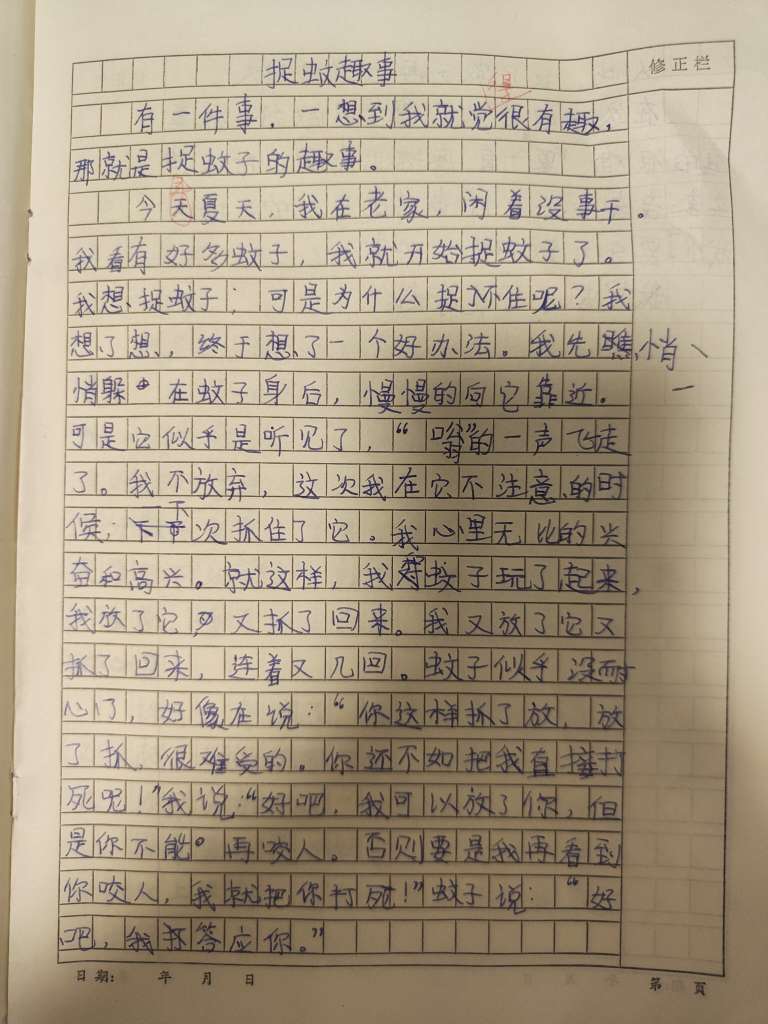 捉蚊趣事
修正栏
得
有一件事，一想到我就觉很有趣，
那就是捉蚊子的趣事。
年
今天夏天，我在老家，闲着没事干。
我看有好多蚊子，我就开始捉蚊子了。
我想捉蚊子，可是为什么捉不住呢？我
想了想，终于想了一个好办法。我先瞧悄
悄躲在蚊子身后，慢慢的向它靠近。
可是它似乎是听见了，“嗡”的一声飞走
了。我不放弃，这次我在它不注意的时
候，一下次抓住了它。我心里无比的兴
奋和高兴。就这样，我蚊子玩了起来，
我放了它又抓了回来。我又放了它又
抓了回来，连着又几回。蚊子似乎没耐
心了，好像在说：“你这样抓了放，放
了抓，很难受的。你还不如把我直接打
死呢！”我说：“好吧，我可以放了你，但
是你不能再咬人。否则要是我再看到
你咬人，我就把你打死！”蚊子说：“好
吧，我答应你。”
日期： 年 月 日
第 页